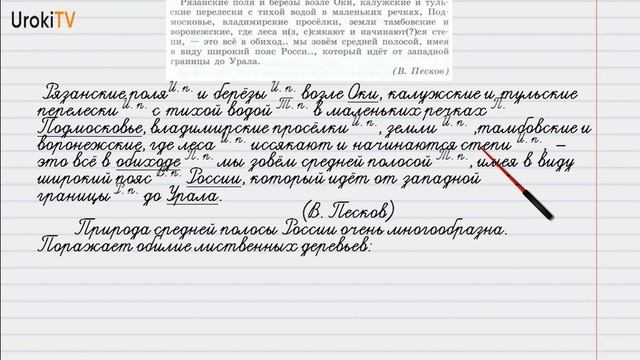 UrokiTV
Рязанские поля и берёзы возле Оки, калужские и туль-
ские перелески с тихой водой в маленьких речках, Под-
московье, владимирские просёлки, земли тамбовские и
воронежские, где леса и(з, с)сякают и начинают(?)ся сте-
пи, — это всё в обиход.. мы зовём средней полосой, имея
в виду широкий пояс Росси.., который идёт от западной
границы до Урала.
(В. Песков)
Рязанские роля И. п. и берёзы И. п. возле Оки, калужские и тульские
перелески И. п. с тихой водой Т. п. в маленьких речках П.
Подмосковье, владимирские просёлки И. п., земли И. п., тамбовские и
воронежские, где леса И. п. иссякают и начинаются степи И. п., –
это всё в обиходе П. п. мы зовём средней полосой Т. п., имея в виду
широкий пояс В. п. России, который идёт от западной
границы Р. п. до Урала.
(В. Песков)
Природа средней полосы России очень многообразна.
Поражает обилие лиственных деревьев: